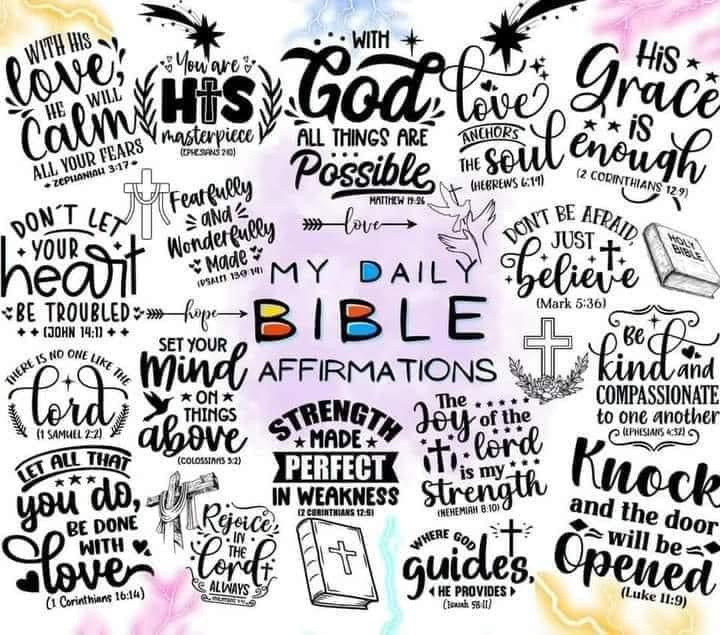 WITH HIS
love,
HE WILL
Calm
ALL YOUR FEARS
ZEPHANIAH 3:17
You are
HIS
masterpiece
(EPHESIANS 2:10)
WITH
God
ALL THINGS ARE
Possible
MATTHEW 19:26
love
ANCHORS
THE soul
(HEBREWS 6:19)
HiS
Grace
iS
enough
(2 CORINTHIANS 12:9)
DON'T LET
YOUR
heart
BE TROUBLED
(JOHN 14:1)
Fearfully
and
Wonderfully
Made
(PSALM 139:14)
love
hope
MY DAILY
BIBLE
AFFIRMATIONS
DON'T BE AFRAID,
JUST
believe
(Mark 5:36)
HOLY
BIBLE
THERE IS NO ONE LIKE THE
lord
(1 SAMUEL 2:2)
SET YOUR
Mind
ON
THINGS
above
(COLOSSIANS 3:2)
STRENGTH
MADE
PERFECT
IN WEAKNESS
(2 CORINTHIANS 12:9)
The
Joy of the
lord
is my
Strength
(NEHEMIAH 8:10)
BE
kind and
COMPASSIONATE
to one another
(EPHESIANS 4:32)
LET ALL THAT
you do,
BE DONE
WITH
love
(1 Corinthians 16:14)
Rejoice
IN
THE
Lord
ALWAYS
WHERE GOD
guides,
HE PROVIDES
(Isaiah 58:11)
Knock
and the door
will be
Opened
(Luke 11:9)